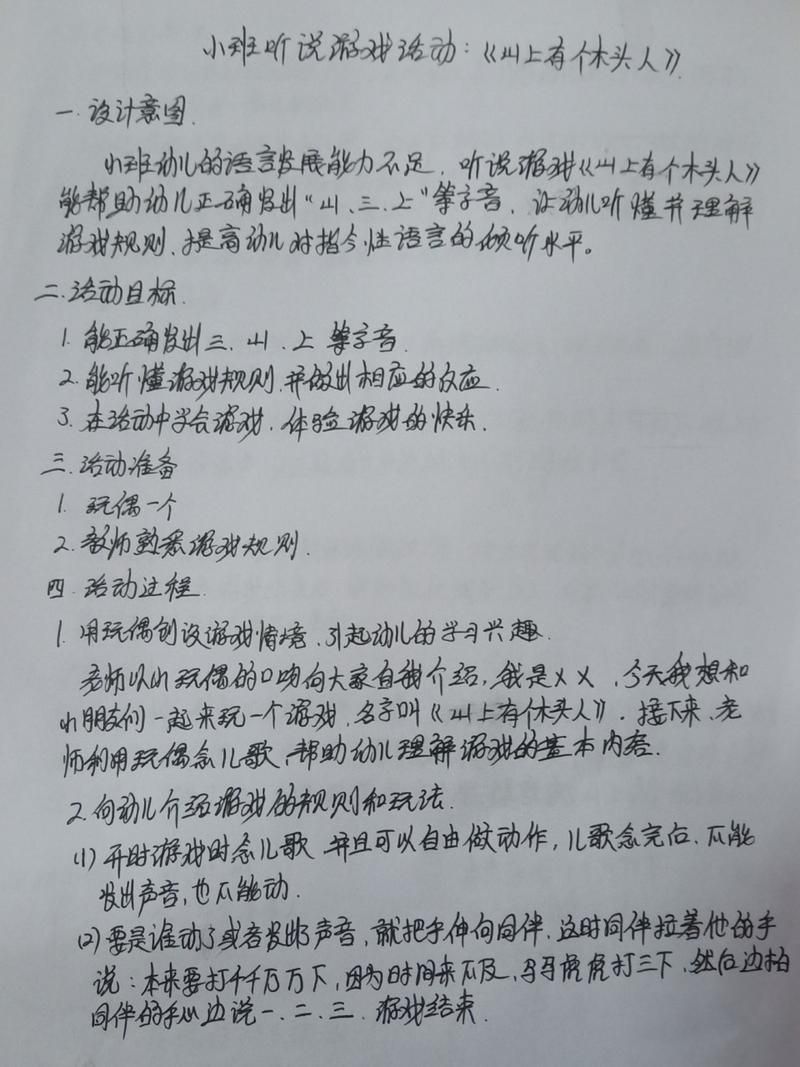 小班听说游戏活动:《山上有个木头人》.
一.设计意图.
小班幼儿的语言发展能力不足,听说游戏《山上有个木头人》
能帮助幼儿正确发出“山、三、上”等字音,让幼儿听懂并理解
游戏规则、提高幼儿对指令性语言的倾听水平。
二.活动目标.
1.能正确发出三、山、上等字音.
2.能听懂游戏规则,并做出相应的反应.
3.在活动中学会游戏,体验游戏的快乐.
三.活动准备
1.玩偶一个
2.教师熟悉游戏规则.
四.活动过程.
1.用玩偶创设游戏情境、引起幼儿的学习兴趣.
老师以小玩偶的口吻向大家自我介绍,我是××,今天我想和
小朋友们一起来玩一个游戏,名字叫《山上有个木头人》.接下来、老
师利用玩偶念儿歌、帮助幼儿理解游戏的基本内容.
2.向幼儿介绍游戏的规则和玩法.
(1)开时游戏时念儿歌 并且可以自由做动作,儿歌念完后、不能
发出声音,也不能动.
(2)要是谁动了或者发出声音,就把手伸向同伴.这时同伴拉着他的手
说:本来要打千千万万下,因为时间来不及,马马虎虎打三下、然后边拍
同伴的手心边说一、二、三.游戏结束.